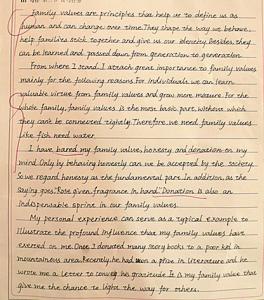 Family values are principles that help us to define us as
human and can change over time. They shape the way we behave,
help families stick together and give us our identity. Besides, they
can be learned and passed down from generation to generation.
From where I stand, I attach great importance to family values
mainly for the following reasons. For individuals, we can learn
valuable virtue from family values and grow more mature. For the
whole family, family values is the most basic part, without which
they can't be connected tightly. Therefore, we need family values
like fish need water.
I have bared my family value, honesty and donation on my
mind. Only by behaving honestly can we be accepted by the society.
So we regard honesty as the fundamental part. In addition, as the
saying goes, "Rose given, fragrance in hand." Donation is also an
indispensable sprine in our family values.
My personal experience can serve as a typical example to
illustrate the profound influence that my family values have
exerted on me. Once, I donated many story books to a poor kid in
mountainess area. Recently, he had won a prize in Literature and he
wrote me a letter to his gratitude. It is my family value that
give me the chance to light the way for others.